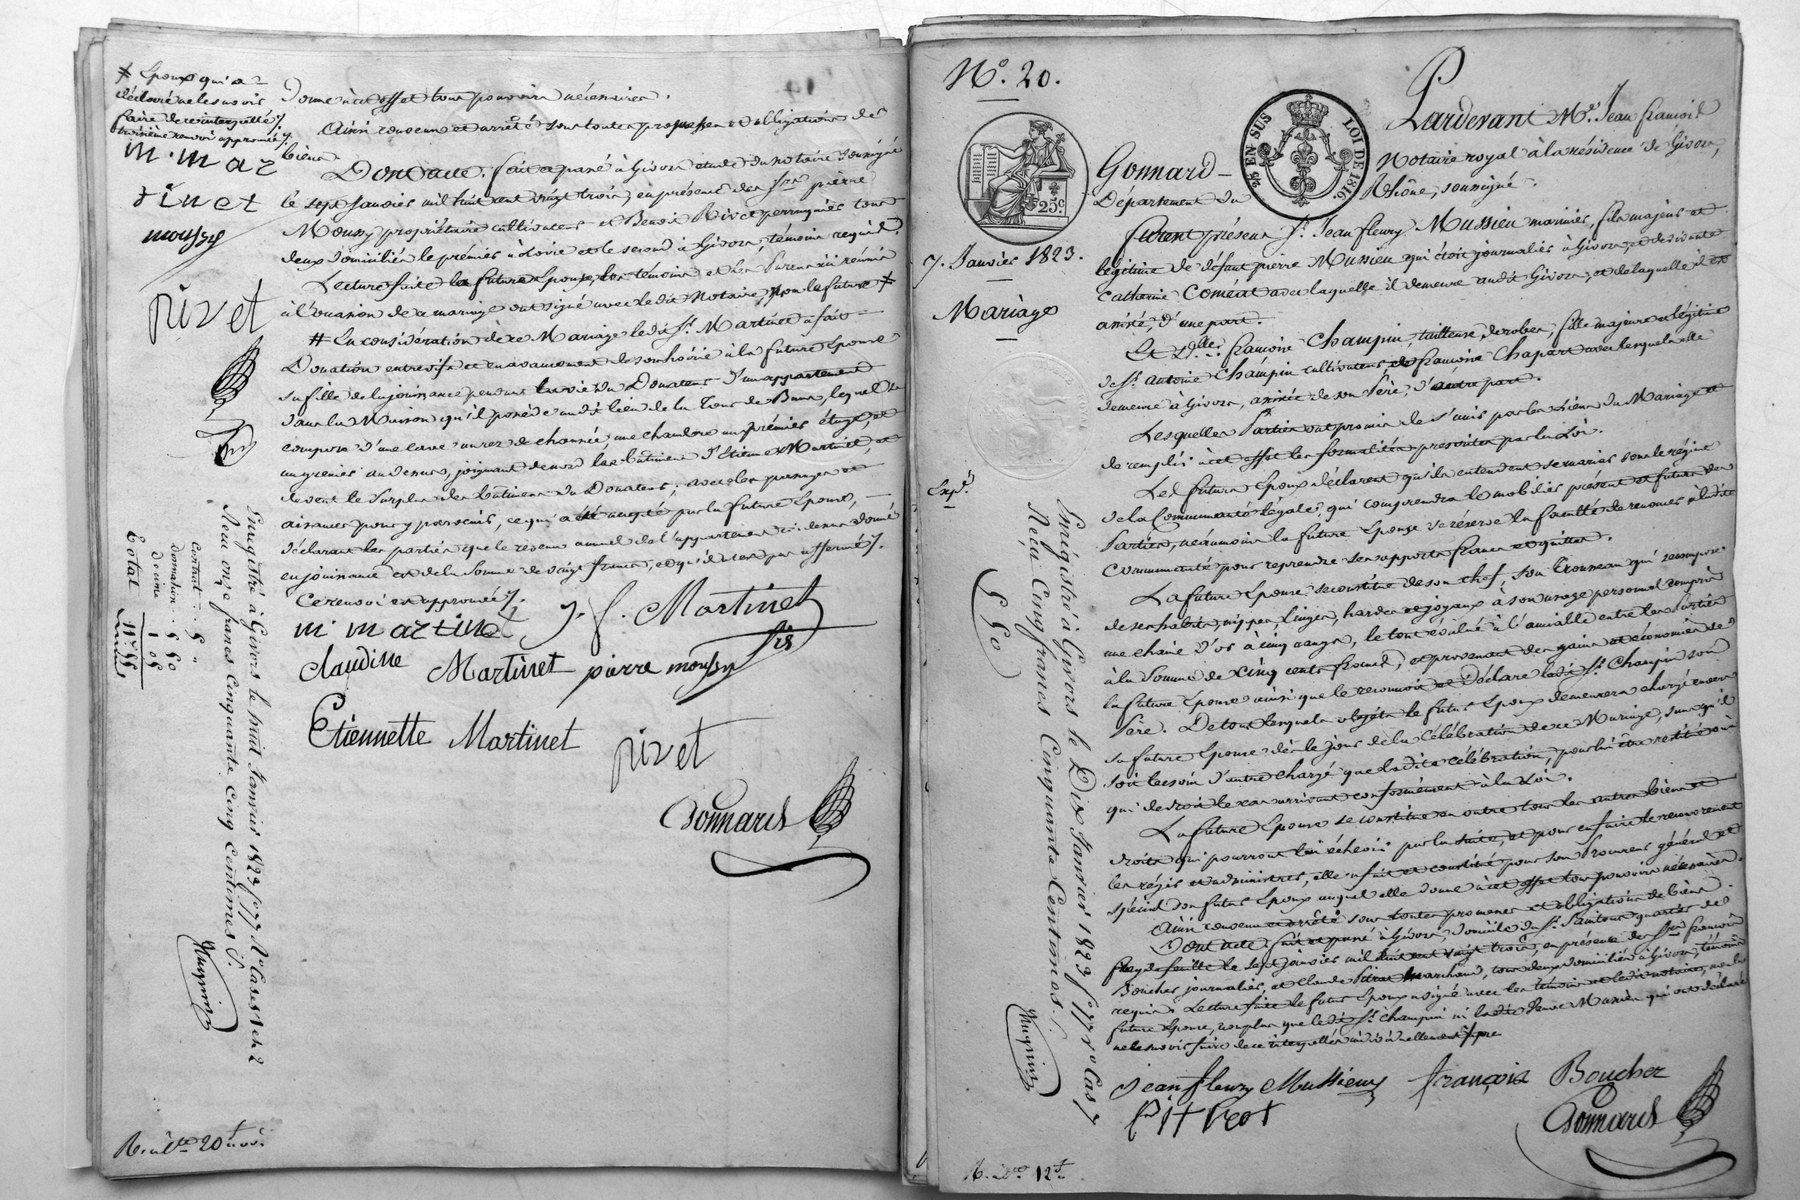 + Epoux qui a
déclaré ne le savoir
faire de ce interpellé
troisième renvoi approuvé
m. maz
tinet
moussy
pivet
Donne à cet effet tous pouvoirs nécessaires.
Ainsi convenu et arrêté sous toutes promesses et obligations de
biens
Dont acte. fait et passé à Givors étude du notaire soussigné
le sept Janvier mil huit cent vingt trois, en présence des Srs pierre
Moussy propriétaire cultivateur et Benoit Rivet perruquier tous
deux domiciliés le premier à Loire et le second à Givors, témoins requis.
Lecture faite la future Epouse, les témoins et les Parens ici réunis
à l'occasion de ce mariage ont signé avec le dit Notaire, non le futur +
# En considération de ce Mariage le dit Sr. Martinet a fait
Donation entre vifs et en avancement de son hoirie à la future Epouse
sa fille de la jouissance pendant la vie du Donateur d'un appartement
dans la Maison qu'il possède au dit lieu de la Tour de Bans, lequel se
compose d'une cave un rez de chaussée, une chambre au premier étage, et
un grenier au dessus, joignant de nord les bâtimens d'Etienne Martinet, et
de vent le surplus des bâtimens du Donateur, avec les passages et
aisances pour y parvenir, ce qui a été accepté par la future Epouse,
déclarant les parties que le revenu annuel de l'appartement ci-dessus donné
en jouissance est de la somme de vingt francs, et qu'il n'est pas affermé.
Ce renvoi est approuvé
m martinet J. f. Martinet fils
claudine Martinet pierre moussy
Etiennette Martinet pivet
Gonnard
Enregistré à Givors le huit Janvier 1823 fo 77 Ro Cases 1 et 2
Reçu onze francs cinquante cinq Centimes
Contrat : 5 "
Donation : 5 50
Décime 1 05
Total 11 55
No. 20.
25 c.
25 EN SUS LOI DE 1816
7. Janvier 1823.
Mariage
Expé.
Pardevant Me. Jean françois
Gonnard Notaire royal à la résidence de Givors,
Departement du Rhône, soussigné.
furent présens Sr. Jean fleury Mussieu marinier, fils majeur et
légitime de défunt pierre Mussieu qui étoit journalier à Givors, et de vivante
Catherine Coméat avec laquelle il demeure au dit Givors, et de laquelle il est
assisté, d'une part.
Et Dlle. françoise Champin, tailleuse de robes, fille majeure et légitime
de Sr. antoine Champin cultivateur, et de françoise Chapart avec lesquels elle
demeure à Givors, assistée de son Père, d'autre part.
Lesquelles Parties ont promis de s'unir par les liens du Mariage et
de remplir à cet effet les formalités prescrites par la Loi.
Les futurs Epoux déclarent qu'ils entendent se marier sous le régime
de la Communauté légale, qui comprendra le mobilier présent et futur des
Parties, néanmoins la future Epouse se réserve la faculté de renoncer à la dite
Communauté pour reprendre ses apports francs et quittes.
La future Epouse se constitue de son chef, son trousseau qui se compose
de ses habits, nippes, linges, hardes et joyaux à son usage personnel compris
une chaine d'or à cinq rangs, le tout évalué à l'amiable entre les Parties
à la Somme de cinq cents francs, et provenant des gains et économies de
la future Epouse ainsi que le reconnoit et Déclare le dit Sr. Champin son
Père. De tous lesquels objets le futur Epoux demeurera chargé envers
sa future Epouse dès le jour de la célébration de ce Mariage, sans qu'il
soit besoin d'autre chargé que la dite célébration, pour lui être restitué ou à
qui de droit le cas arrivant conformément à la Loi.
La future Epouse se constitue en outre tous les autres biens et
droits qui pourront lui échoir par la suite, et pour en faire le recouvrement
les régir et administrer, elle a fait et constitué pour son Procureur général et
spécial son futur Epoux auquel elle donne à cet effet tous pouvoirs nécessaires.
Ainsi convenu et arrêté sous toutes promesses et obligations de biens.
Dont acte : fait et passé à Givors, domicile du Sr. Saintour quartier de
le sept janvier mil huit cent vingt trois, en présence des Srs françois
Boucher journalier, et Claude Pitrat Marchand, tous deux domiciliés à Givors, témoins
requis. Lecture faite le futur Epoux a signé avec les témoins et le dit notaire, non la
future Epouse, non plus que le dit Sr. Champin ni la dite Veuve Mussieu qui ont déclaré
ne le savoir faire de ce interpellés individuellement
Jean fleury Mussieux françois Boucher
Gonnard
Enregistré à Givors le Dix Janvier 1823 fo 77 Vo Cas 7
Reçu Cinq francs Cinquante Centimes
5 50